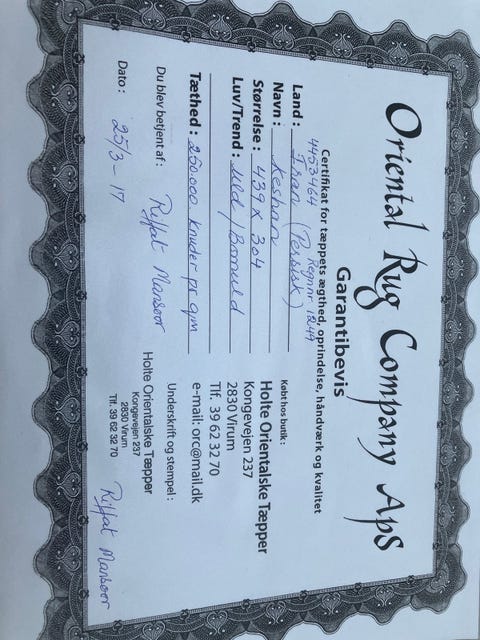 Oriental Rug Company ApS
Garantibevis
Certifikat for tæppets ægthed, oprindelse, håndværk og kvalitet
4453464 Regnnr. 1249
Land : Iran (Persisk)
Navn : Keshan
Størrelse : 439 x 304
Luv/Trend : Uld / Bomuld
Tæthed : 250.000 Knuder pr. qm
Du blev betjent af : Riffat Mansoor
Dato : 25/3 - 17
Købt hos butik :
Holte Orientalske Tæpper
Kongevejen 237
2830 Virum
Tlf. 39 62 32 70
e-mail: orc@mail.dk
Underskrift og stempel :
Holte Orientalske Tæpper
Kongevejen 237
2830 Virum
Tlf. 39 62 32 70
Riffat Mansoor